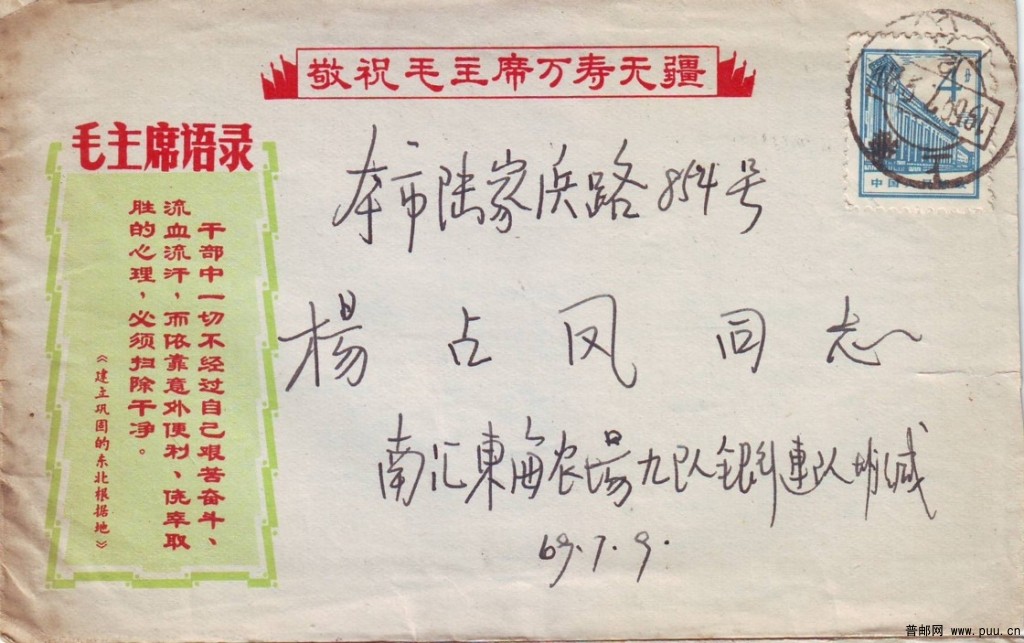 敬祝毛主席万寿无疆
毛主席语录
干部中一切不经过自己艰苦奋斗、
流血流汗，而依靠意外便利、侥幸取
胜的心理，必须扫除干净。
《建立巩固的东北根据地》
4分
中国人民邮政
本市陆家浜路854号
楊占凤同志
南汇東海农場九队
連队
69.7.9.
普邮网 www.puu.cn